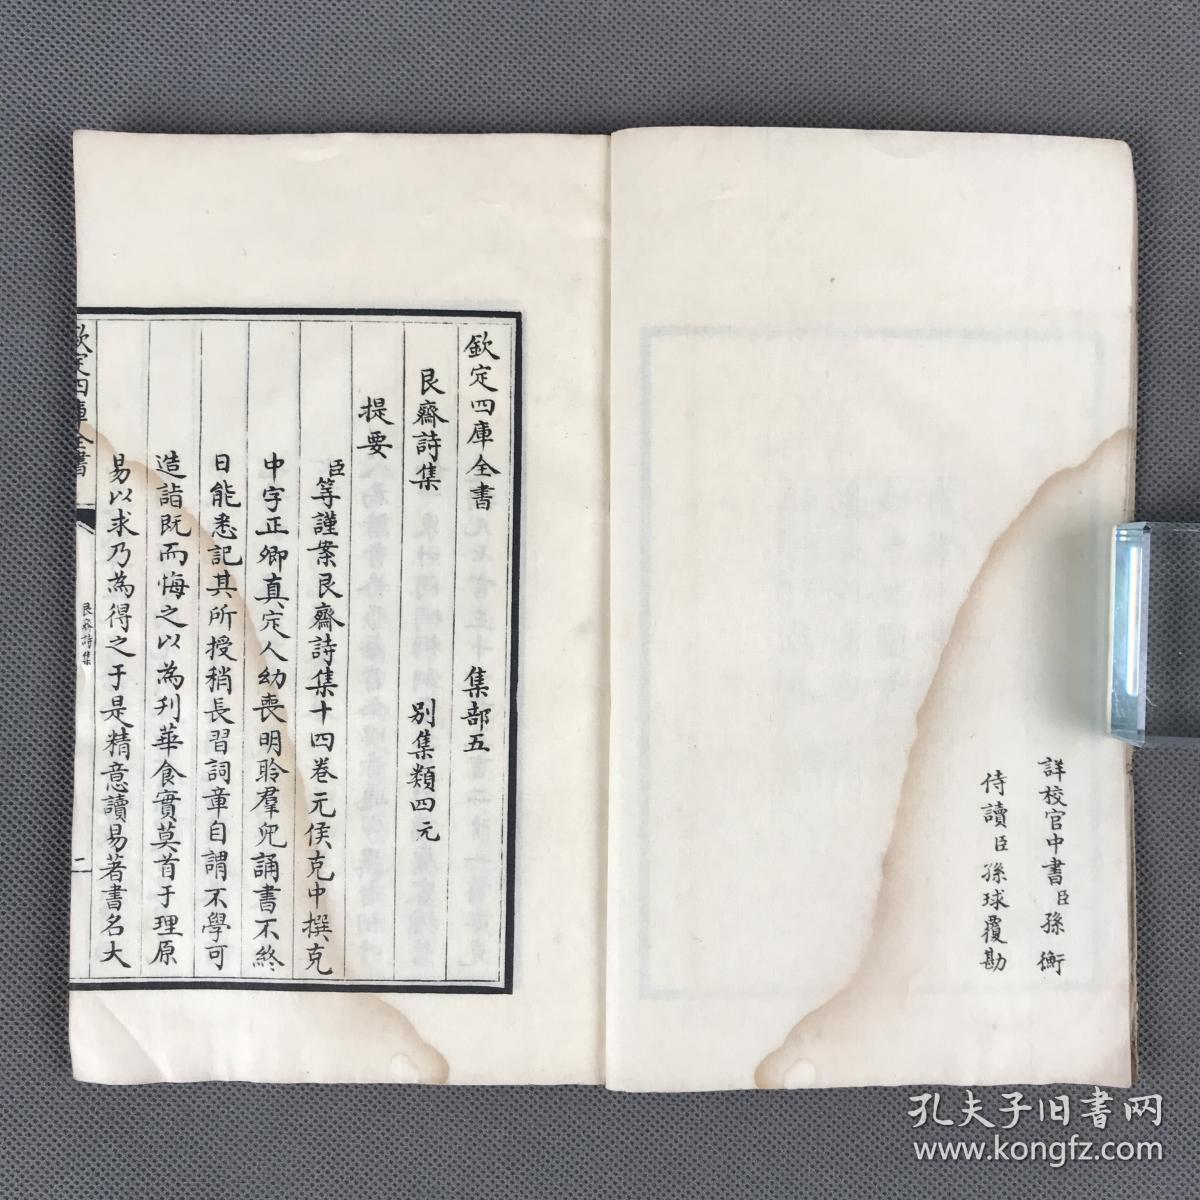 詳校官中書臣孫衡
侍讀臣孫球覆勘
欽定四庫全書 集部五
艮齋詩集 別集類四元
提要
臣等謹案艮齋詩集十四卷元侯克中撰克
中字正卿真定人幼喪明聆羣兒誦書不終
日能悉記其所授稍長習詞章自謂不學可
造詣既而悔之以為刋華食實莫首于理原
易以求乃為得之于是精意讀易著書名大
欽定四庫全書
艮齋詩集
二
孔夫子旧书网
www.kongfz.com